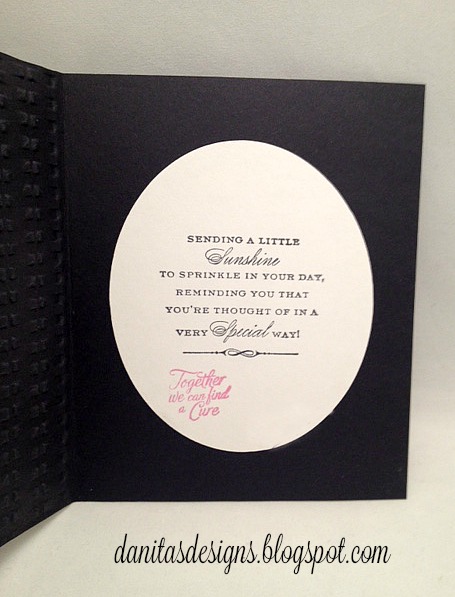 SENDING A LITTLE
Sunshine
TO SPRINKLE IN YOUR DAY,
REMINDING YOU THAT
YOU'RE THOUGHT OF IN A
VERY Special WAY!
Together
we can find
a Cure
danitasdesigns.blogspot.com